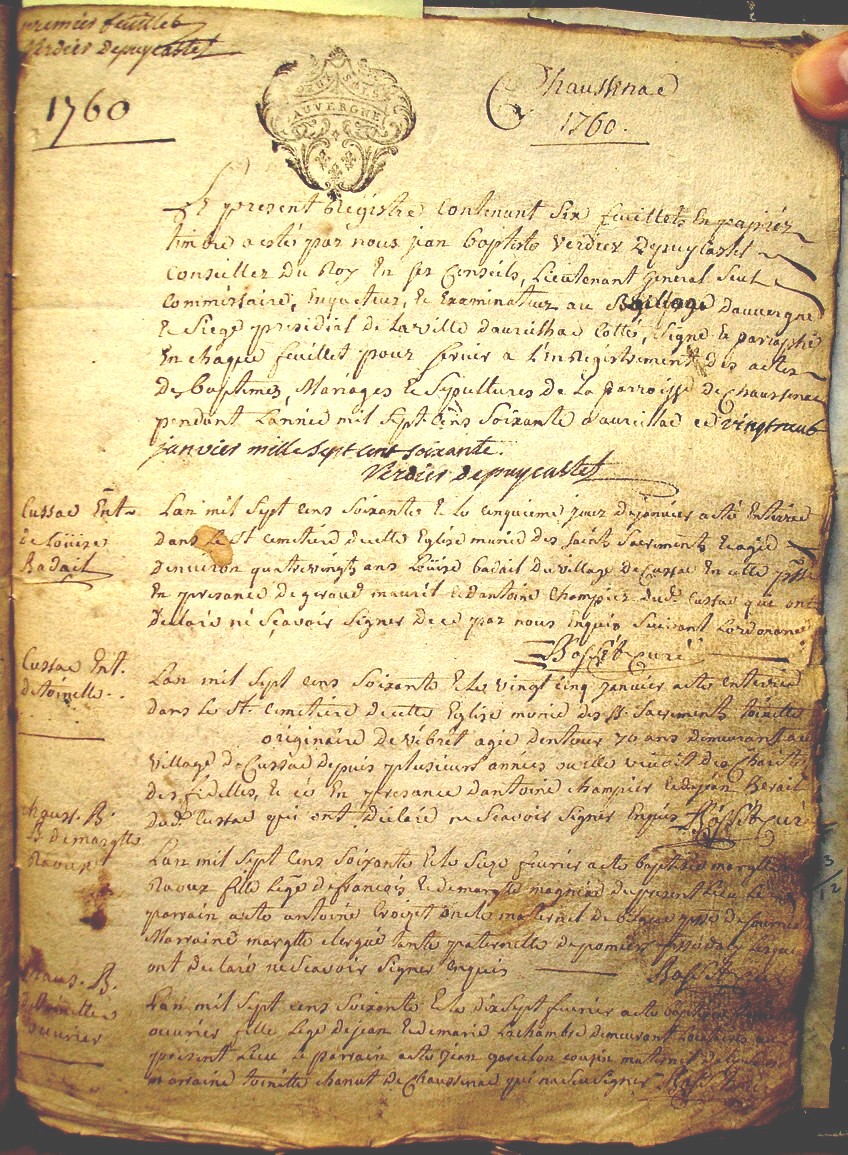 premier feuillet
Verdier depuycastel
1760
AUVERGNE
Chaussenac
1760.
Le present Registre Contenant Six feuillets En papier
timbré a esté par nous jean baptiste Verdier Depuycastel
Conseiller Du Roy En ses Conseils, Lieutenant General Seul
Commissaire, Enqueteur, Et Examinateur au Bailliage dauvergne
Et Siege presidial de La ville daurilhac Cotté, Signé Et parraphé
En chaque feuillet pour servir a L'enregistrement des actes
De Baptemes, Mariages Et Sepultures De La parroisse de Chaussenac
pendant Lannée mil Sept Cens Soixante a aurillac ce vingt neuf
janvier mille Sept cent soixante.
Verdier depuycastel
Cussac Ent.
De Loüise
Badail
Lan mil Sept Cens Soixante Et Le cinquieme jour dejanvier a eté Enterrée
dans Le St Cemetiere decette Eglise munie des Saints Sacrements Et agée
denviron quatrevingts ans Loüise badail du village De Cussac En cette psse
En presance de geraud mauret Et dantoine Champier dud. Cussac qui ont
declaré ne Sçavoir Signer De ce par nous Enquis Suivant Lordonance
Bossit curé
Cussac Ent.
de toinette
Lan mil Sept Cens Soixante Et Le vingt cinq janvier a eté enterrée
dans Le St. Cemetiere decette Eglise munie des St. Sacrements toinette
originaire De vebret agée denviron 70 ans Demeurant au
village De Cussac depuis plusieurs années ou elle vivoit des Charités
des fidelles, Et ce En presance dantoine champier Et dejean Berail
Dud. Cussac qui ont declaré ne Scavoir Signer Enquis Bossit curé
chauss. B.
B demargte
Raoux
Lan mil Sept Cens Soixante Et Le Seize fevrier a eté baptisée margte
Raoux fille Legme defrancois Et demargte magniac du present Lieu Le
parrain a eté antoine Croizet oncle maternel de psse de
Marraine margte clergue tante paternelle De
ont declaré ne Scavoir Signer enquis Bossit curé
Chaus. B.
de toinette
ouvrier
Lan mil Sept Cens Soixante Et Le dix Sept fevrier a eté baptisée
ouvrier fille Lege dejean Et demarie Lachambre demeurant Locataires au
present Lieu Le parrain a eté jean garcelon cousin maternel
marraine toinette chanut de Chaussenac qui na Scu Signer Bossit curé
3
12